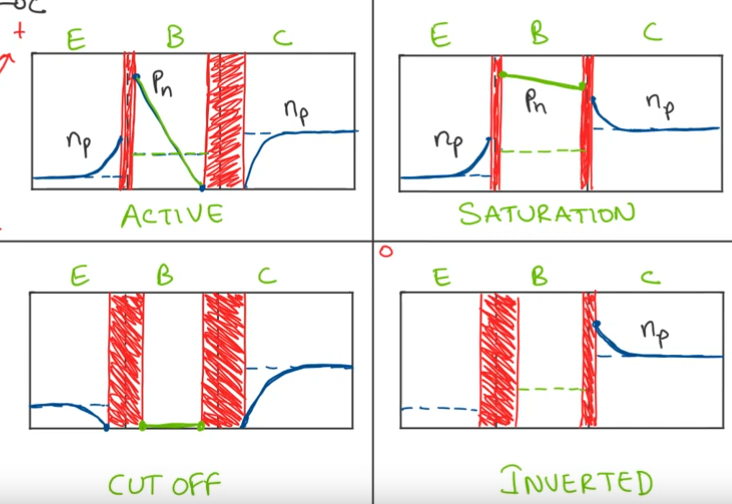 +
E B C
Pn
np
np
ACTIVE
E B C
Pn
np
np
SATURATION
E B C
CUT OFF
E B C
np
INVERTED